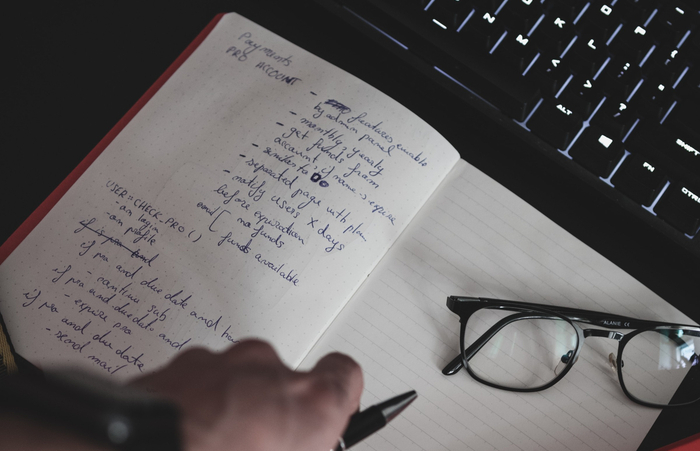 Payments
PRO ACCOUNT
- features enable
by admin panel
- monthly, yearly
- get funds from
account, if name is expire
- similar to
- separated page with plan
- notify users X days
before expiration
and [ no funds
funds available
USER::CHECK_PRO()
- on login
- on profile
if pro and
if pro and due date and
- continue sub
if pro and due date and
- expire pro
if pro and due date
- send mail
ALANIS CE
N
M
K
O
P
ALT
FN
SHIFT
CTRL